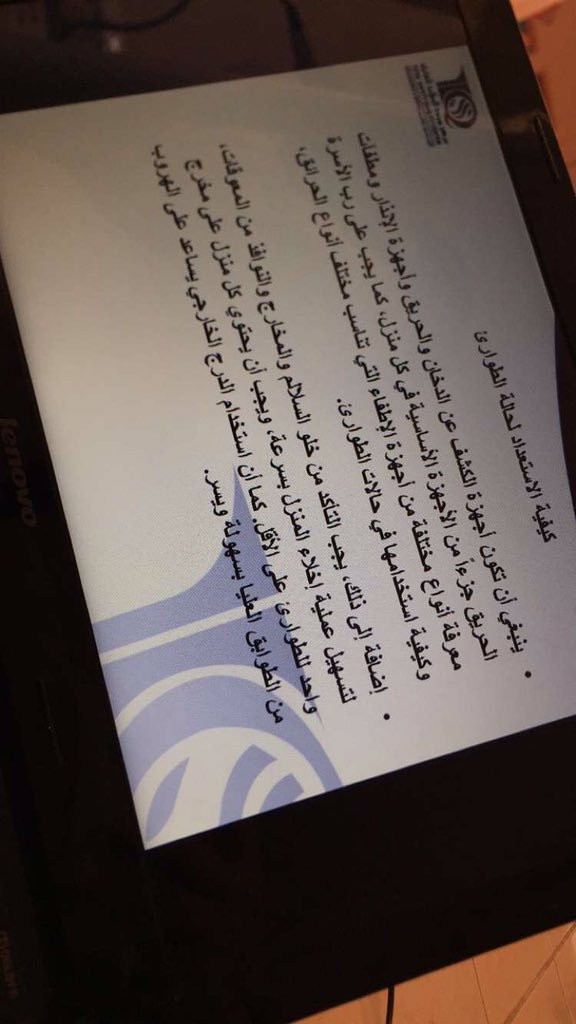 كيفية الاستعداد لحالة الطوارئ
• ينبغي أن تكون أجهزة الكشف عن الدخان والحريق وأجهزة الإنذار ومطفئات
الحريق جزءاً من الأجهزة الأساسية في كل منزل، كما يجب على رب الأسرة
معرفة أنواع مختلفة من أجهزة الإطفاء التي تناسب مختلف أنواع الحرائق،
وكيفية استخدامها في حالات الطوارئ.
• إضافة إلى ذلك، يجب التأكد من خلو السلالم والمخارج والنوافذ من المعوقات،
لتسهيل عملية إخلاء المنزل بسرعة، ويجب أن يحتوي كل منزل على مخرج
واحد للطوارئ على الأقل. كما أن استخدام الدرج الخارجي يساعد على الهروب
من الطوابق العليا بسهولة ويسر.
lenovo